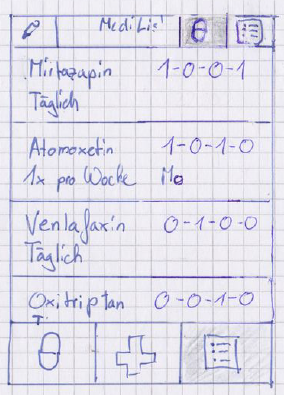 Medi Lis
Mirtazapin 1-0-0-1
Täglich
Atomoxetin 1-0-1-0
1x pro Woche Mo
Venlafaxin 0-1-0-0
Täglich
Oxitriptan 0-0-1-0
T